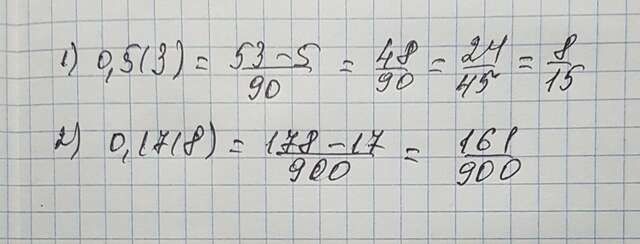 1) 0,5(3) = 53-5/90 = 48/90 = 24/45 = 8/15
2) 0,17(8) = 178-17/900 = 161/900